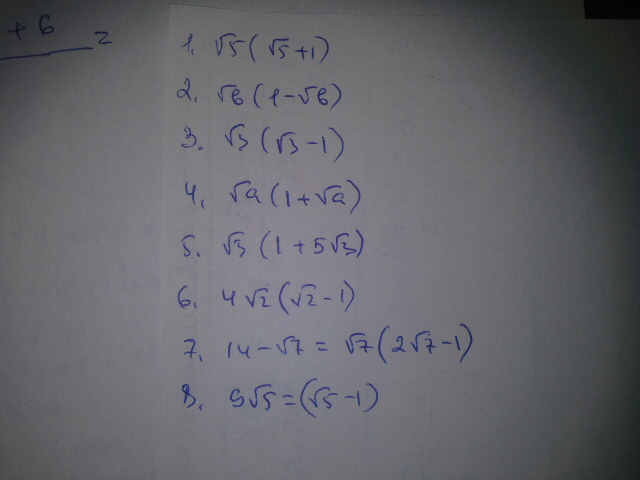 + 6 =
1. √5 (√5+1)
2. √b (1-√b)
3. √3 (√3-1)
4. √a (1+√a)
5. √3 (1+5√3)
6. 4√2 (√2-1)
7. 14-√7 = √7 (2√7-1)
8. 9√5=(√5-1)